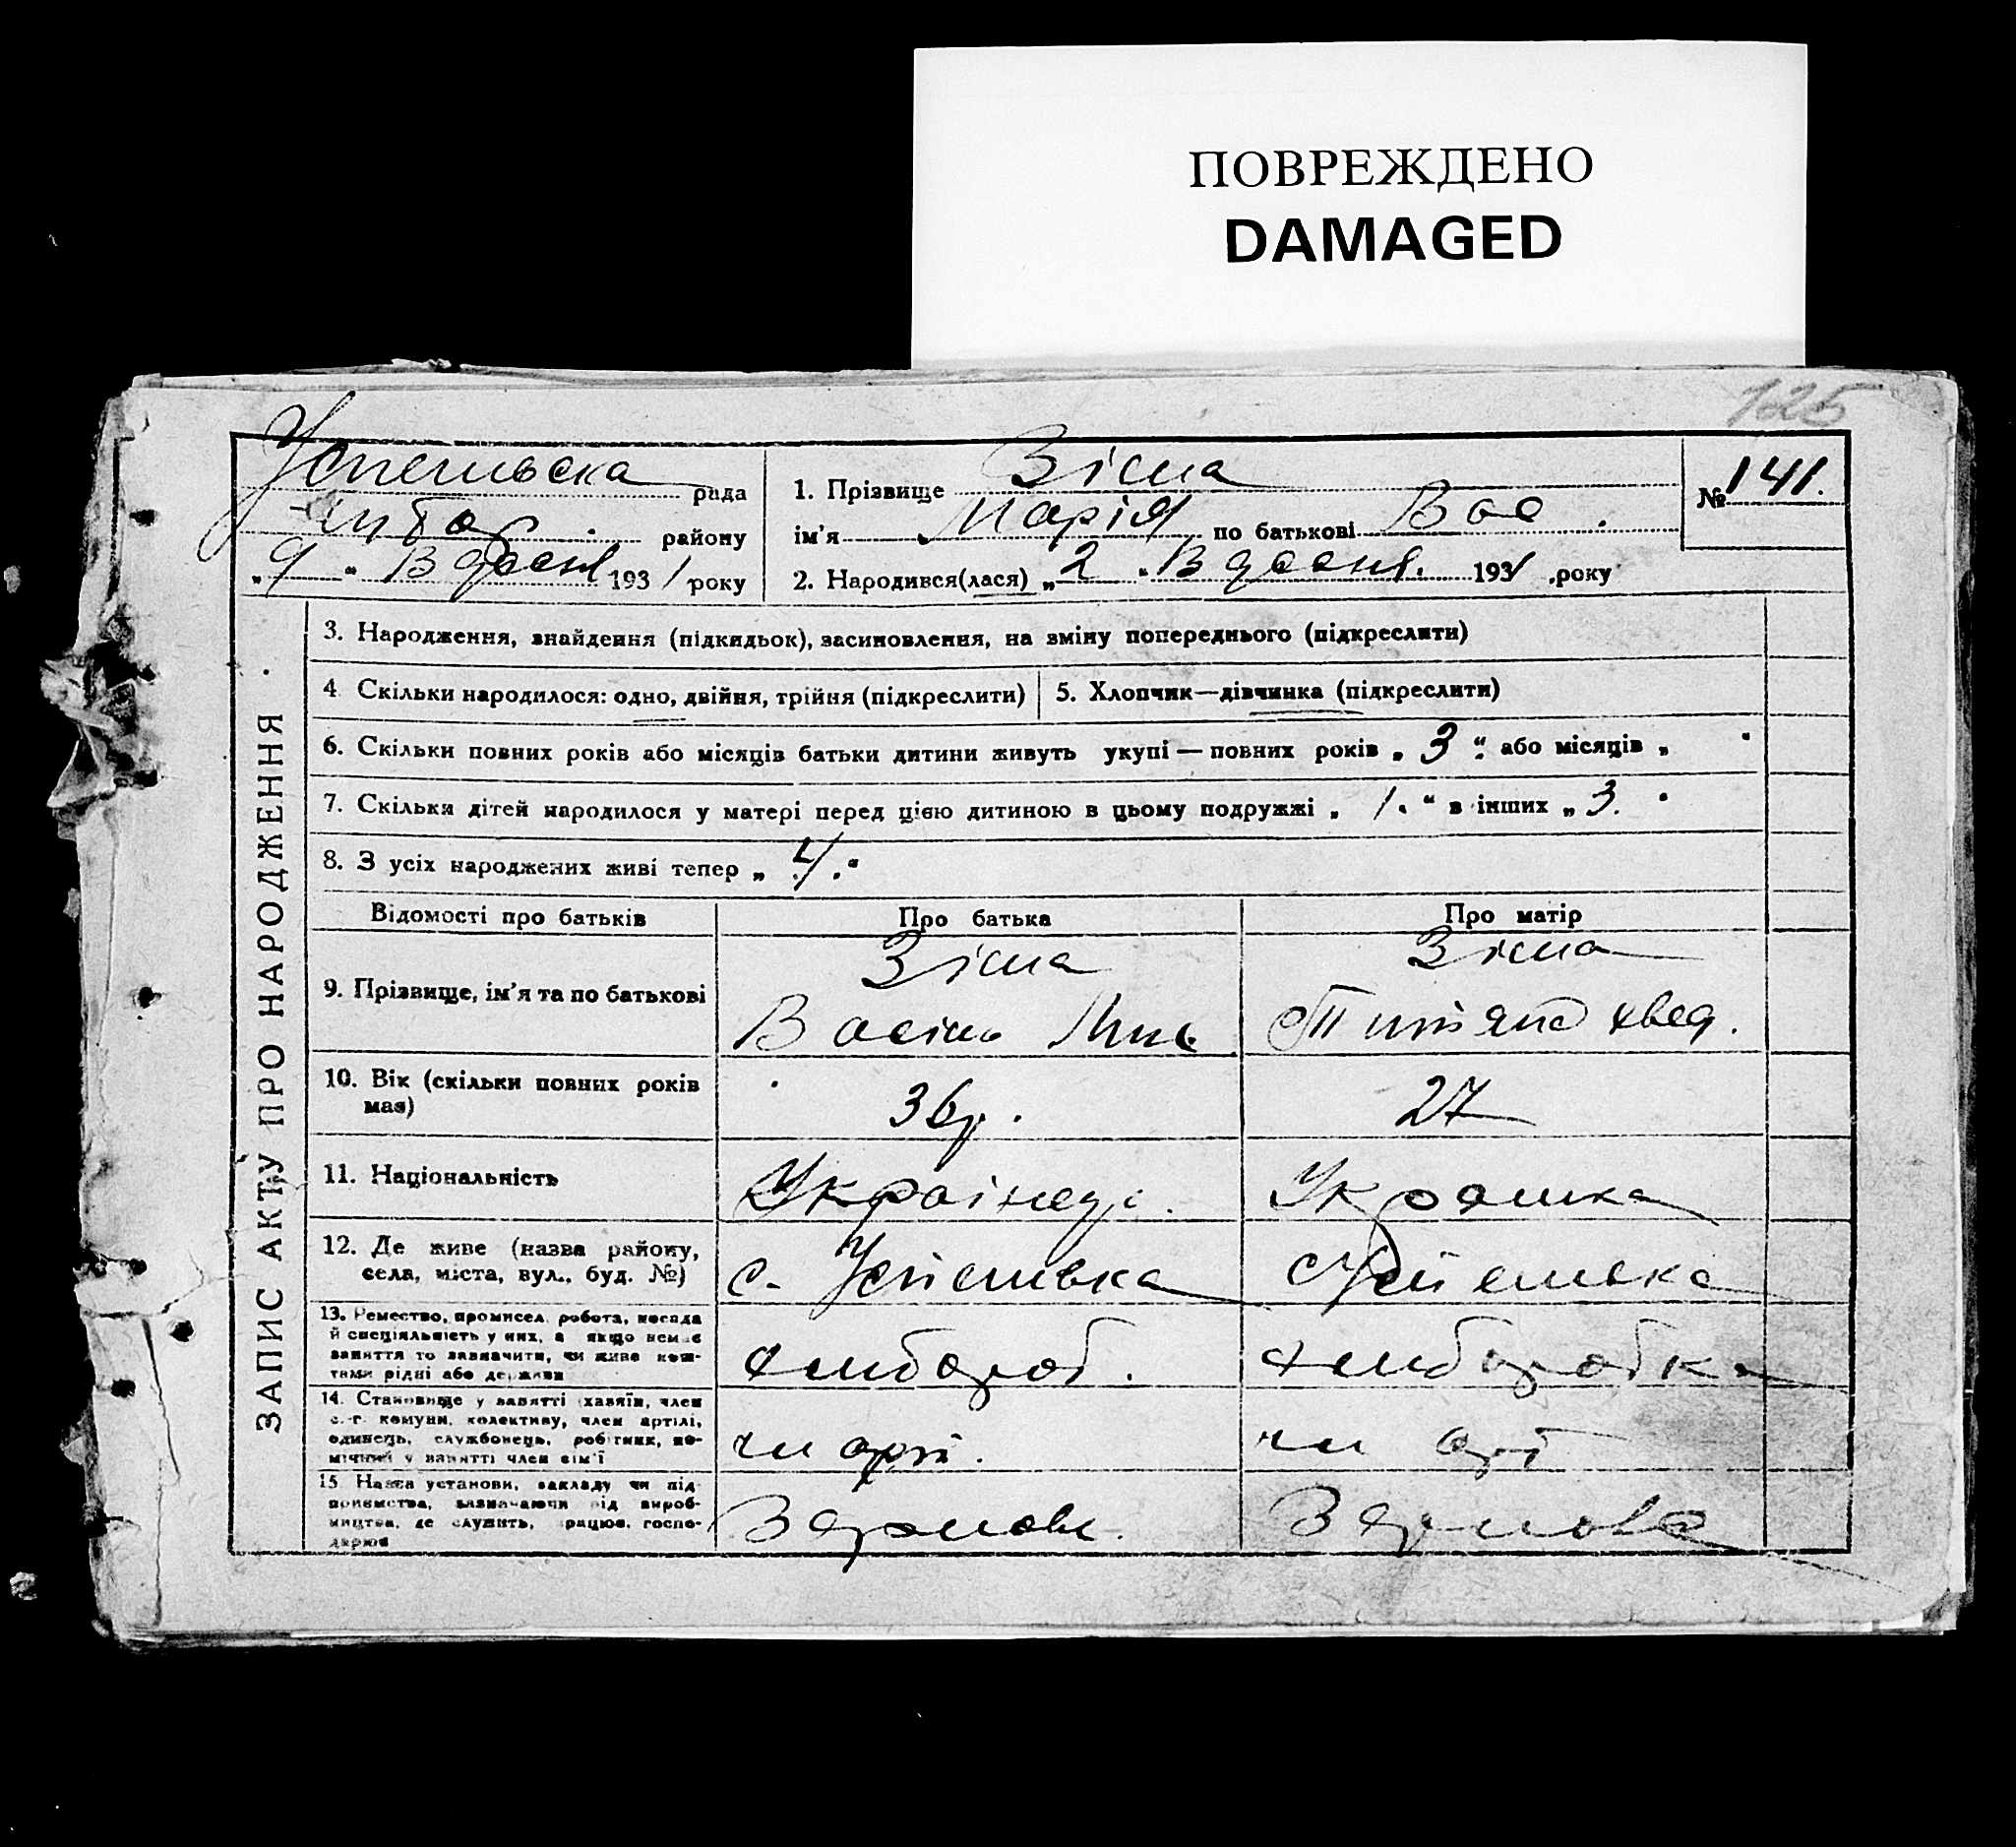 ПОВРЕЖДЕНО
DAMAGED
125
Успенська рада
району
„9“ Вересня 1931 року
1. Прізвище Зісма
ім'я Марія по батькові Вас.
2. Народився(лася) „2“ Вересня. 1931 року
№ 141.
ЗАПИС АКТУ ПРО НАРОДЖЕННЯ
3. Народження, знайдення (підкидьок), засиновлення, на зміну попереднього (підкреслити)
4 Скільки народилося: одно, двійня, трійня (підкреслити)
5. Хлопчик—дівчинка (підкреслити)
6. Скільки повних років або місяців батьки дитини живуть укупі — повних років „3“ або місяців „
7. Скільки дітей народилося у матері перед цією дитиною в цьому подружжі „1.“ в інших „3.
8. З усіх народжених живі тепер „4.“
Відомості про батьків
Про батька
Про матір
9. Прізвище, ім'я та по батькові
Зісма
Зісма
10. Вік (скільки повних років має)
36р.
27
11. Національність
Українець.
12. Де живе (назва району,
села, міста, вул., буд. №)
с.
13. Ремество, промисел, робота, посада
й спеціяльність у них, а якщо немає
заняття то зазначити, чи живе кош-
тами рідні або держави
хлібороб.
хліборобка
14. Становище у занятті (хазяїн, член
с.-г. комуни, колективу, член артілі,
одинець, службовець, робітник, по-
мічний у занятті член сім'ї
чл арт.
чл арт
15 Назва установи, закладу чи під-
приємства, зазначаючи рід вироб-
ництва, де служить, працює, госпо-
дарює